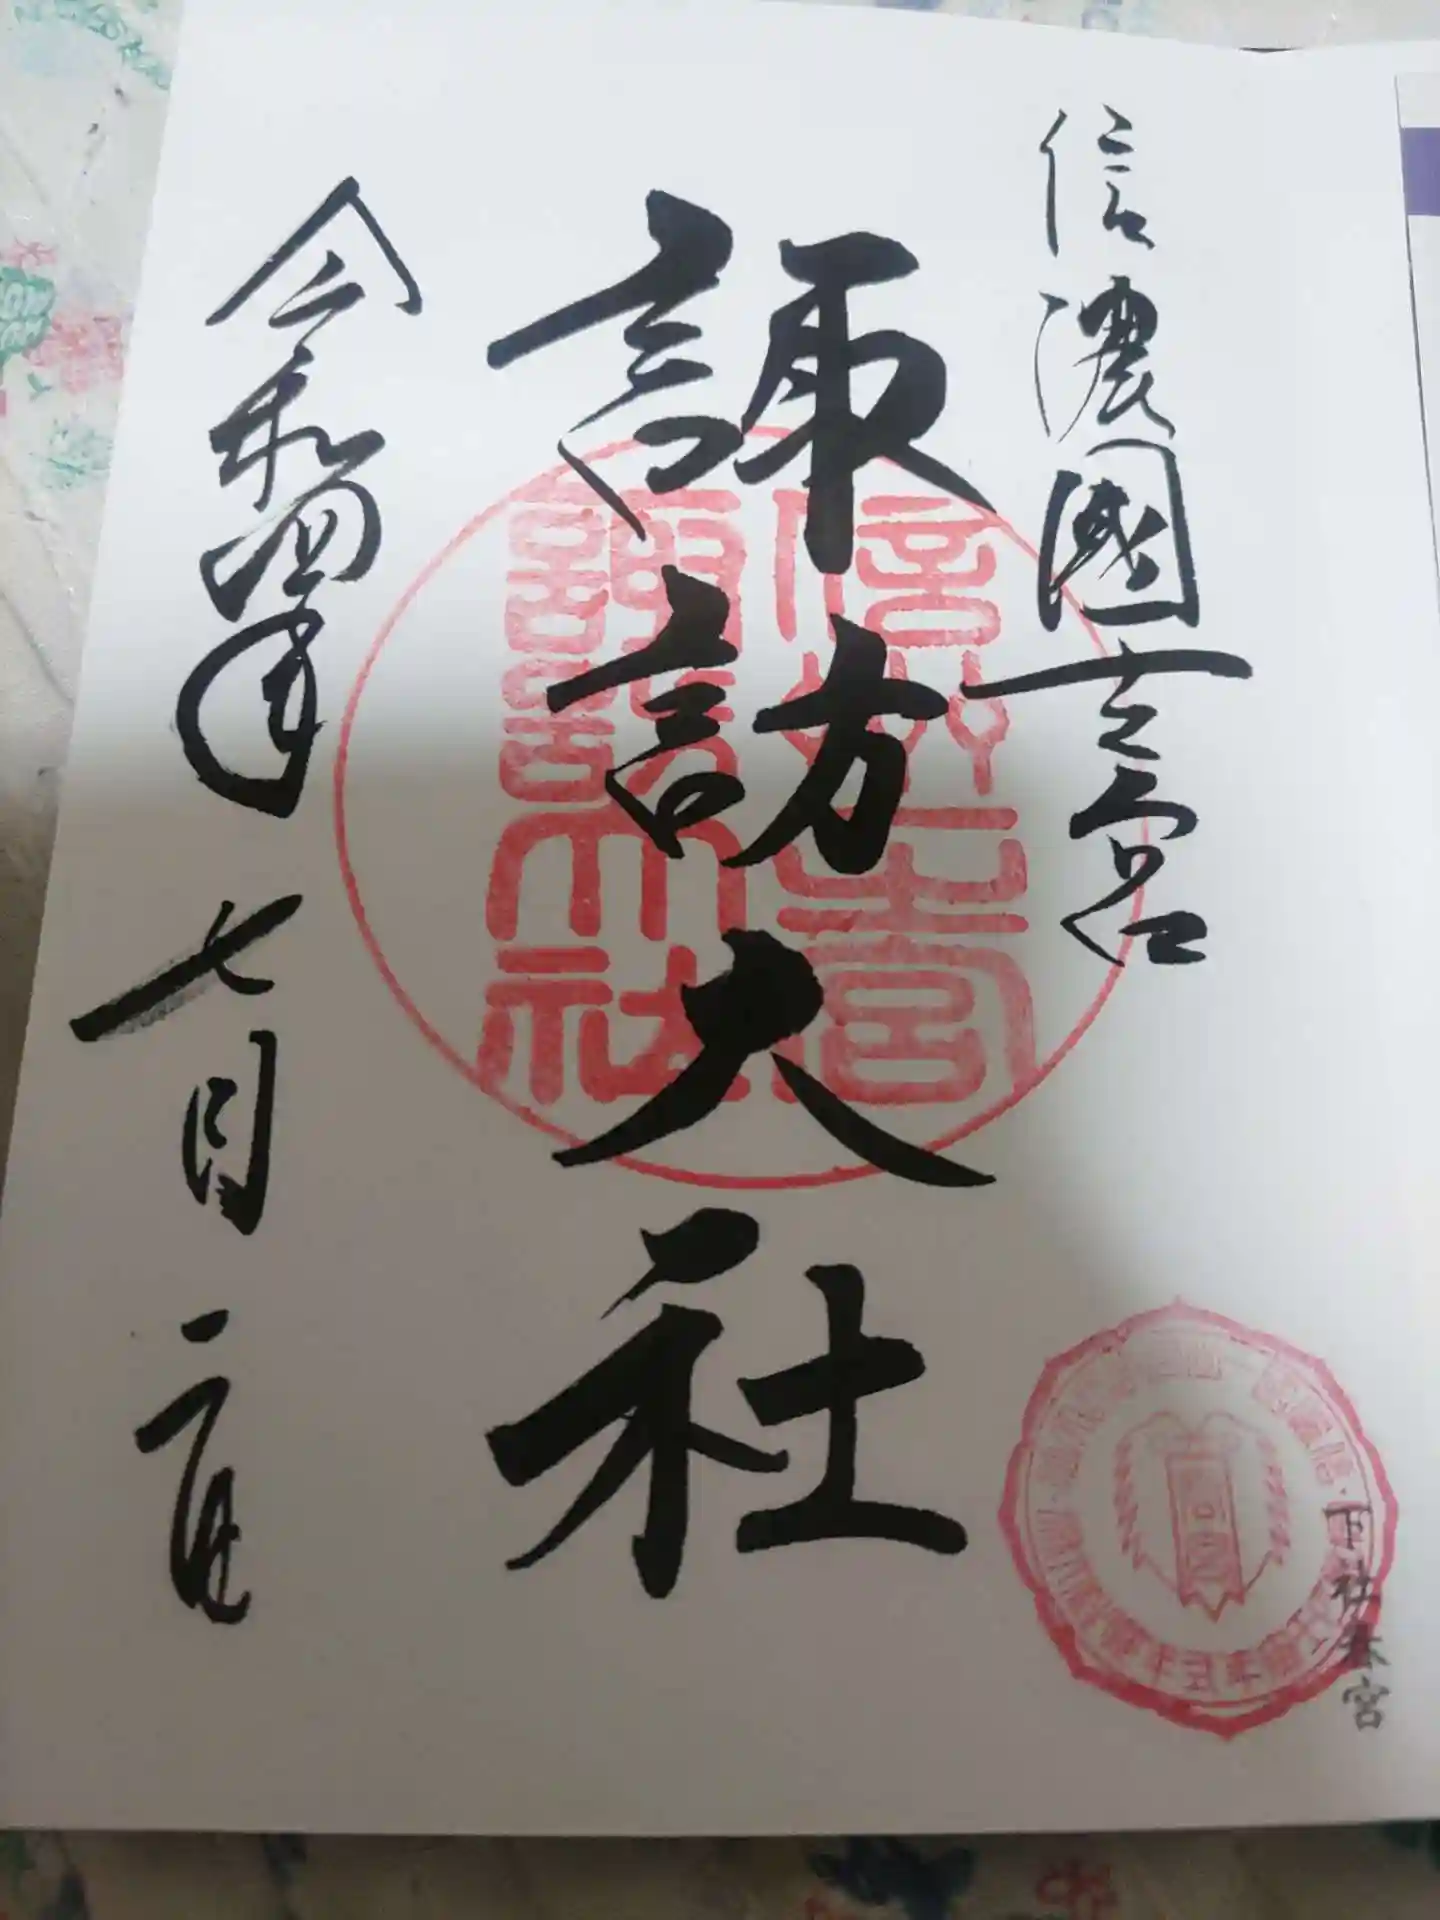 信濃國一之宮
諏訪大社
令和四年七月二日
信州一之宮
諏訪大社
下社春宮